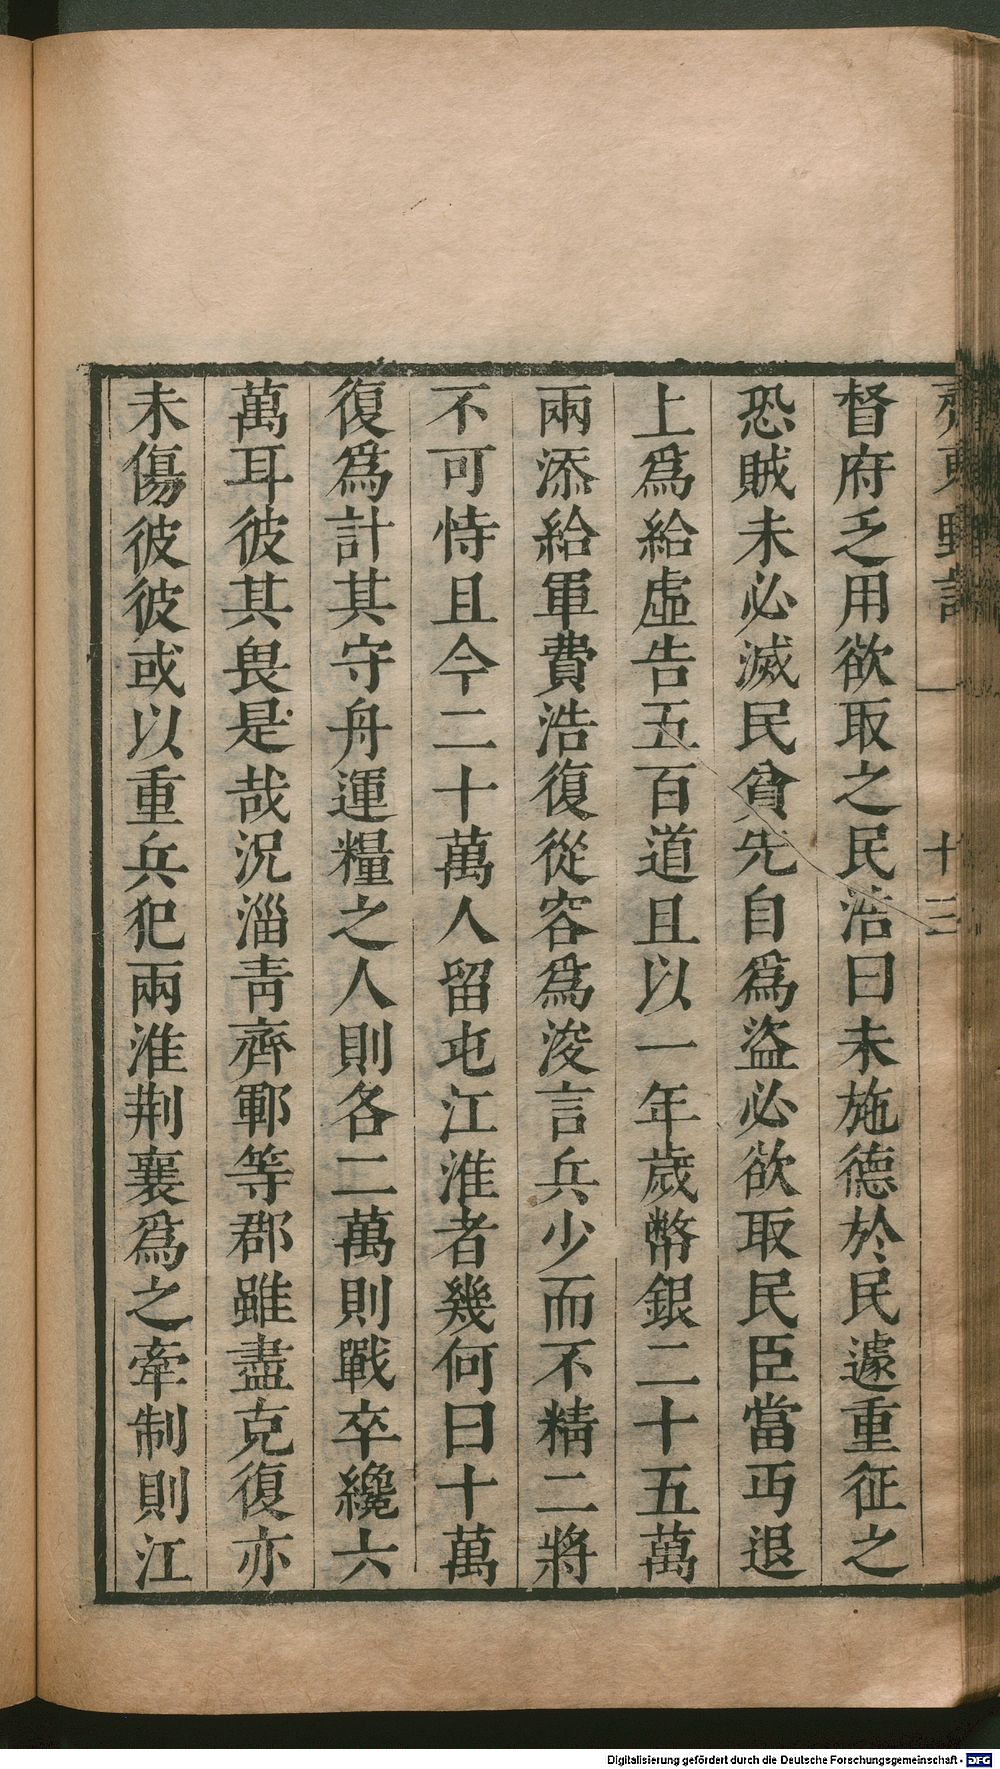 督府乏用欲取之民浩曰未施德於民遽重征之
恐賊未必滅民貧先自為盜必欲取民臣當丐退
上為給虛告五百道且以一年歲幣銀二十五萬
兩添給軍費浩復從容為浚言兵少而不精二將
不可恃且今二十萬人留屯江淮者幾何曰十萬
復為計其守舟運糧之人則各二萬則戰卒纔六
萬耳彼其畏是哉況淄青齊鄆等郡雖盡克復亦
未傷彼彼或以重兵犯兩淮荆襄為之牽制則江
Digitalisierung gefördert durch die Deutsche Forschungsgemeinschaft - DFG